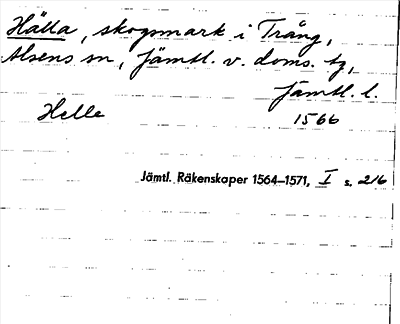 Hälla, skogsmark i Trång,
Alsens sn, Jämtl. v. doms. tg,
Jämtl. l.
Helle 1566
Jämtl. Räkenskaper 1564–1571, I s. 216